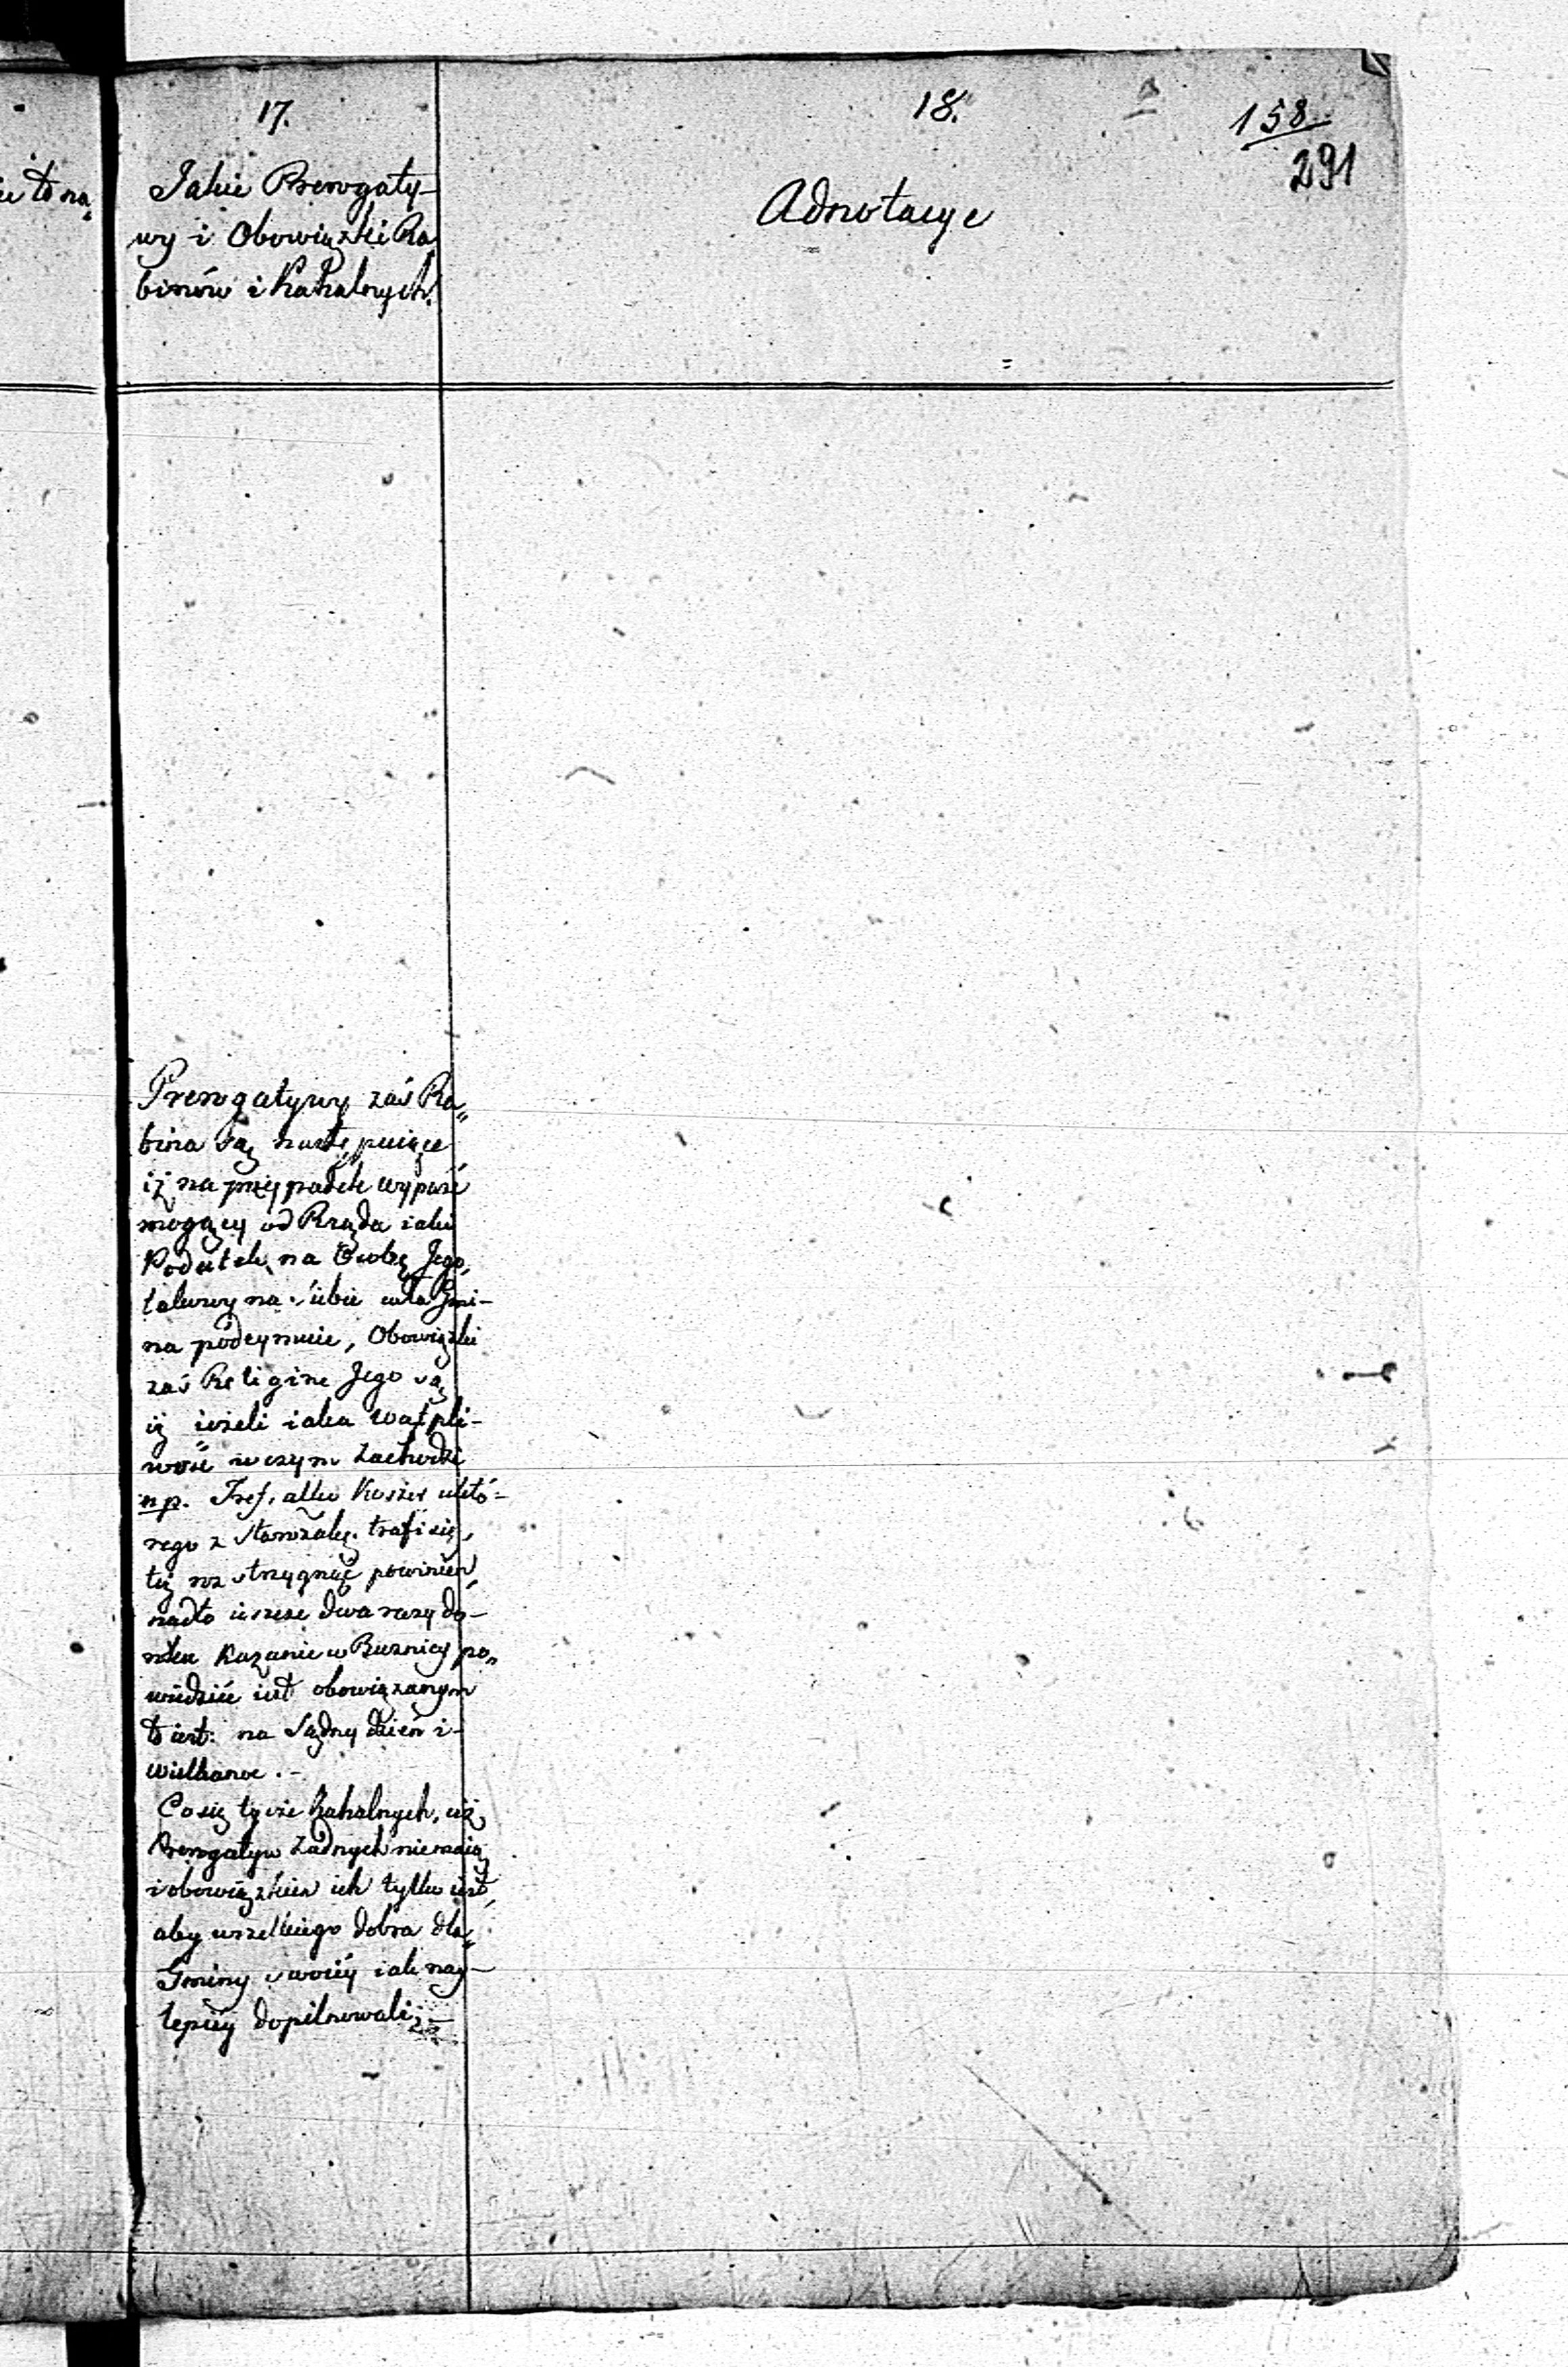 17.
Jakie Prerogaty-
wy i Obowiązki Ra
binów i Kahalnych.
18.
Adnotacye
158
291
Prerogatywy zaś Ra„
bina są następuiące
iż na przypadek wypaść
mogący od Rządu iaki
Podatek, na Osobę Jego,
takowy na siebie cała Gmi-
na podeymuie, Obowiązki
zaś Religine Jego są
iż ieżeli iaka wątpli-
wość w czym zachodzi
np. Tref, albo Koszer któ-
rego z Starozak: trafi się,
tę rozstrzygnąć powinien,
nadto ieszcze dwa razy do-
roku Kazanie w Buznicy po„
wiedzieć iest obowiązanym
to iest: na Sądny dzień i-
wielkanoc. -
Co się tycze Kahalnych, ciż
Prerogatyw żadnych niemaią
i obowiązkiem ich tylko iest,
aby wszelkiego dobra dla„
Gminy swoiéy iak nay-
lepiéy dopilnowali; -